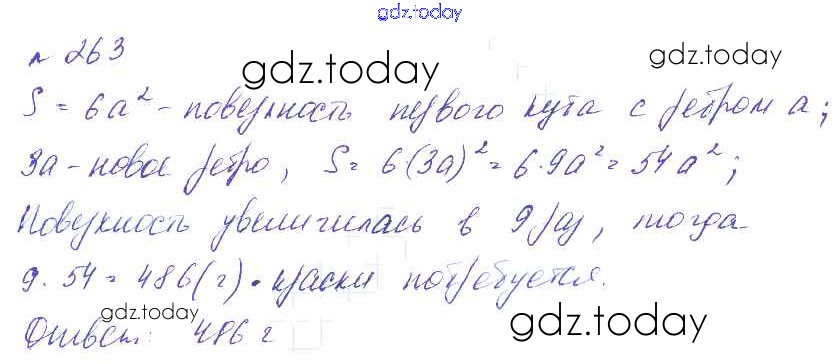 gdz.today
№ 263
gdz.today gdz.today
S = 6a² - поверхность первого куба с ребром a;
3a - новое ребро, S = 6(3a)² = 6·9a² = 54a²;
Поверхность увеличилась в 9 раз, тогда
9·54 = 486(г) - краски потребуется.
gdz.today
Ответ: 486 г
gdz.today